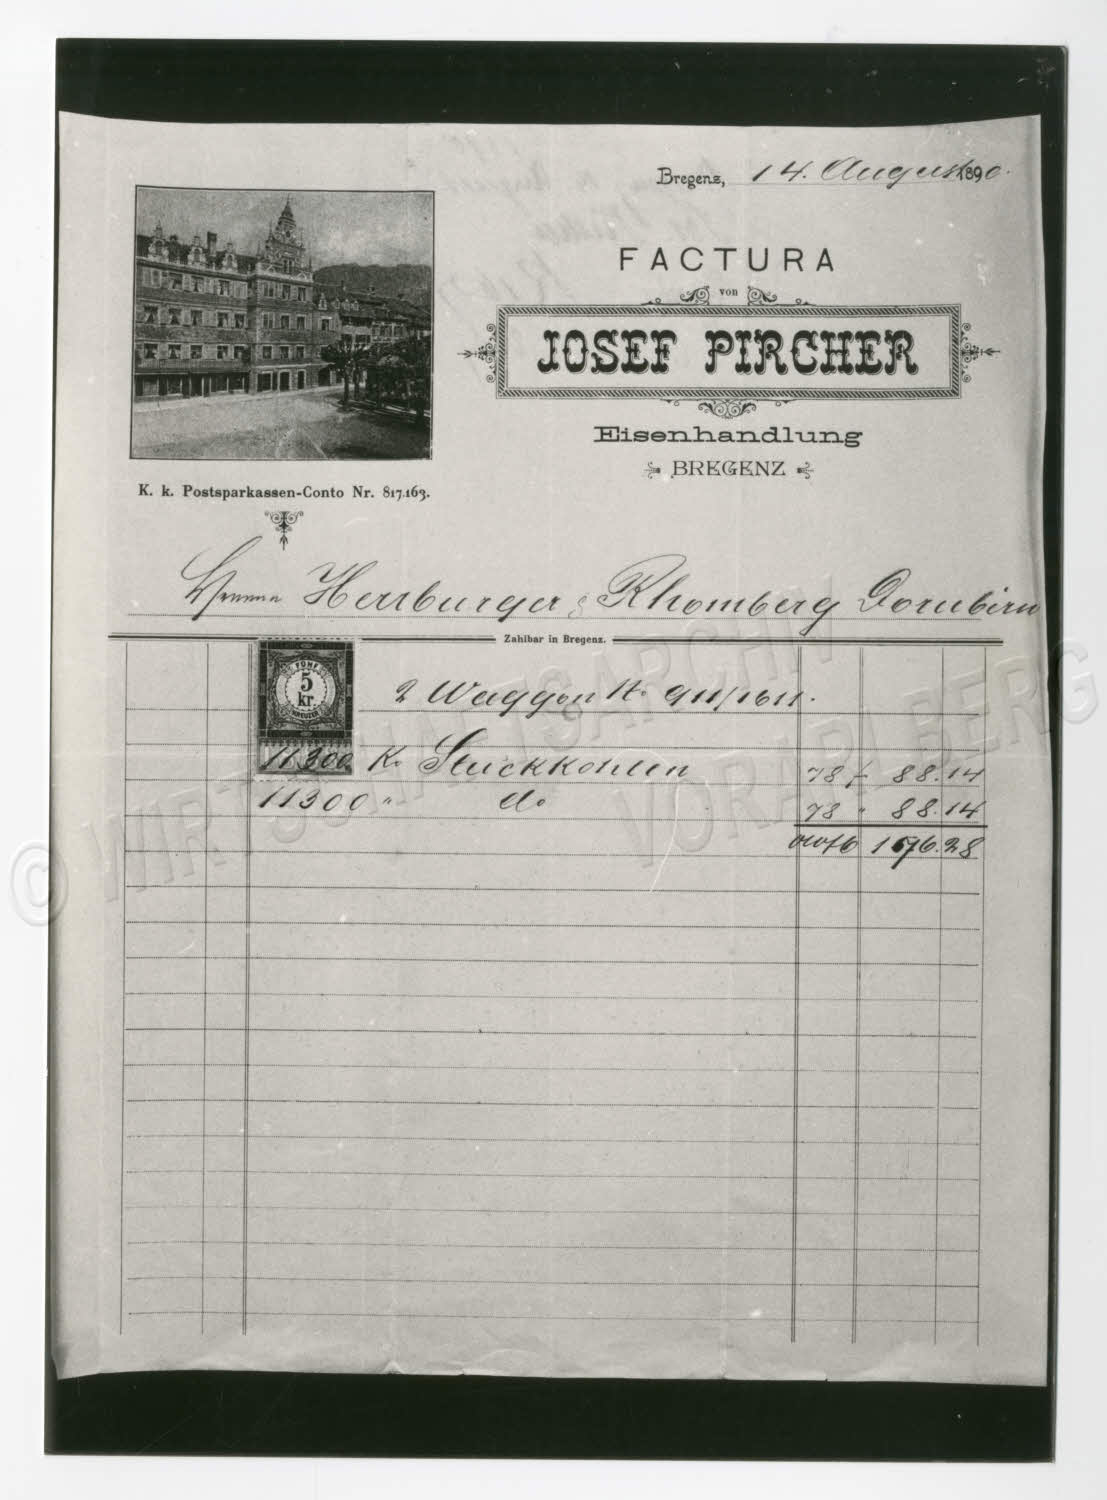 Bregenz, 14. August 1890.
FACTURA
von
JOSEF PIRCHER
Eisenhandlung
BREGENZ
K. k. Postsparkassen-Conto Nr. 817.163.
Herrburger & Rhomberg Dornbirn
Zahlbar in Bregenz.
FÜNF
5
kr.
KREUZER
2 Waggon No 911/1611.
11300 Ko Stückkohlen 78 f 88.14
11300 " do 78 " 88.14
176.28
© WIRTSCHAFTSARCHIV
VORARLBERG